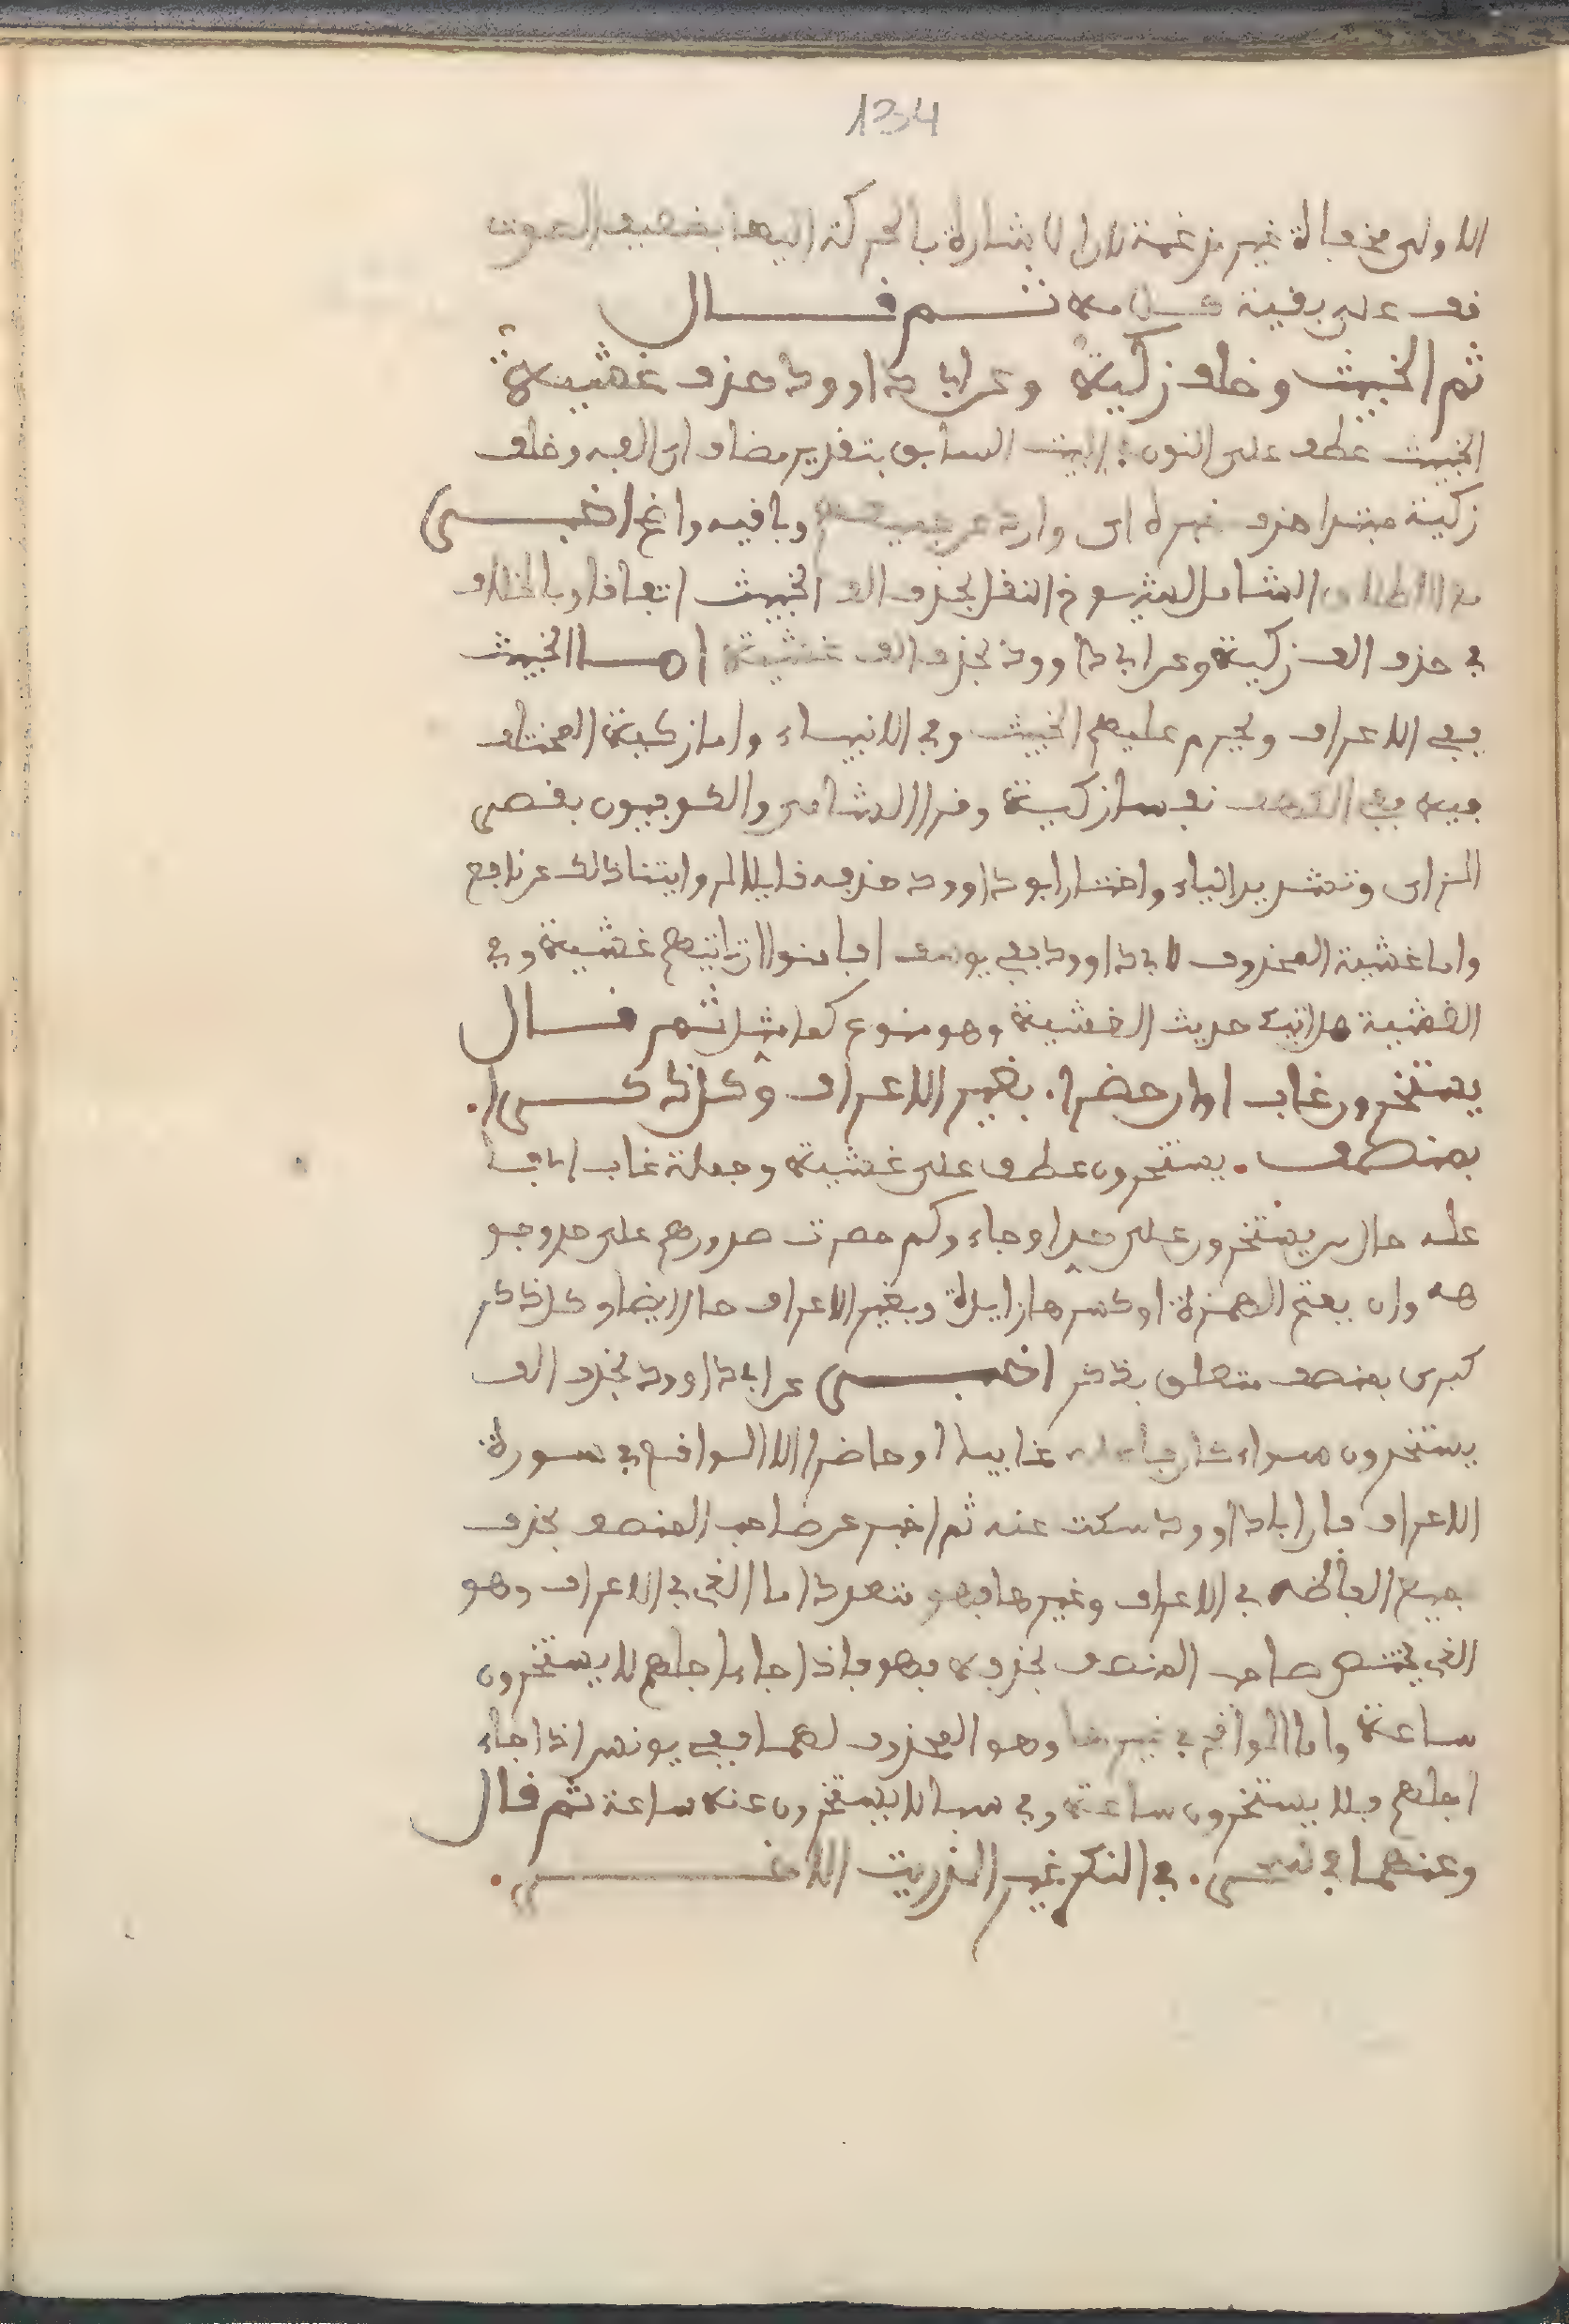 134
الاولى مخفاة غير مدغمة لان الاشارة بالحركة اليها بضعيف الصوت
قف على بقية كلامه ثم قال
ثم الخبيث وخلف زكية وعن ابي داوود حذف غشية
الخبيث عطف على النون في البيت السابق بتقدير مضاف اى الفه وخلف
زكية مبتدا حذف خبره اى وارد عن جميعهم وباقيه واضح اخبر
مع الاطلاق الشامل لشيوخ النقل بحذف الف الخبيث اتفاقا وبالخلاف
في حذف الف زكية وعن ابي داوود بحذف الف غشية اما الخبيث
ففي الاعراف ويحرم عليهم الخبيث وفي الانبياء واما زكية المختلف
فيه ففي الكهف نفسا زكية وقراا الشامي والكوفيون بقصر
الزاى وتشديد الياء واختار ابو داوود حذفه قايلا لروايتنا ذالك عن نافع
واما غشية المحذوف لابي داوود ففي يوسف افامنوا ان تاتيهم غشية وفي
الغشية هل اتيك حديث الغشية وهو منوع كما مثل ثم قال
يستخرون غاب او ان حضرا . بغير الاعراف وكل ذكرا .
بمنصف . يستخرون عطف على غشية وجملة غاب
حال من يستخرون على حد او جاءوكم حصرت صدورهم على حد وجو
هه وان بفتح الهمزة او كسرها زايدة وبغير الاعراف حال ايضا وكل ذكر
كبرى بمنصف متعلق بذكر اخبر عن ابي داوود بحذف الف
يستخرون سواء كان غايبا او حاضرا الا الواقع في سورة
الاعراف فان ابا داوود سكت عنه ثم اخبر عن صاحب المنصف بحذف
جميع الفاظه في الاعراف وغيرها فهو متعدد اما الذي في الاعراف وهو
الذي يختص صاحب المنصف بحذفه فهو فاذا جاء اجلهم لا يستخرون
ساعة واما الواقع في غيرها وهو المحذوف لهما ففي يونس اذا جاء
اجلهم فلا يستخرون ساعة وفي سبا لا يستخرون عنه ساعة ثم قال
وعنهما في . في النكر غير الذريت الاخر .